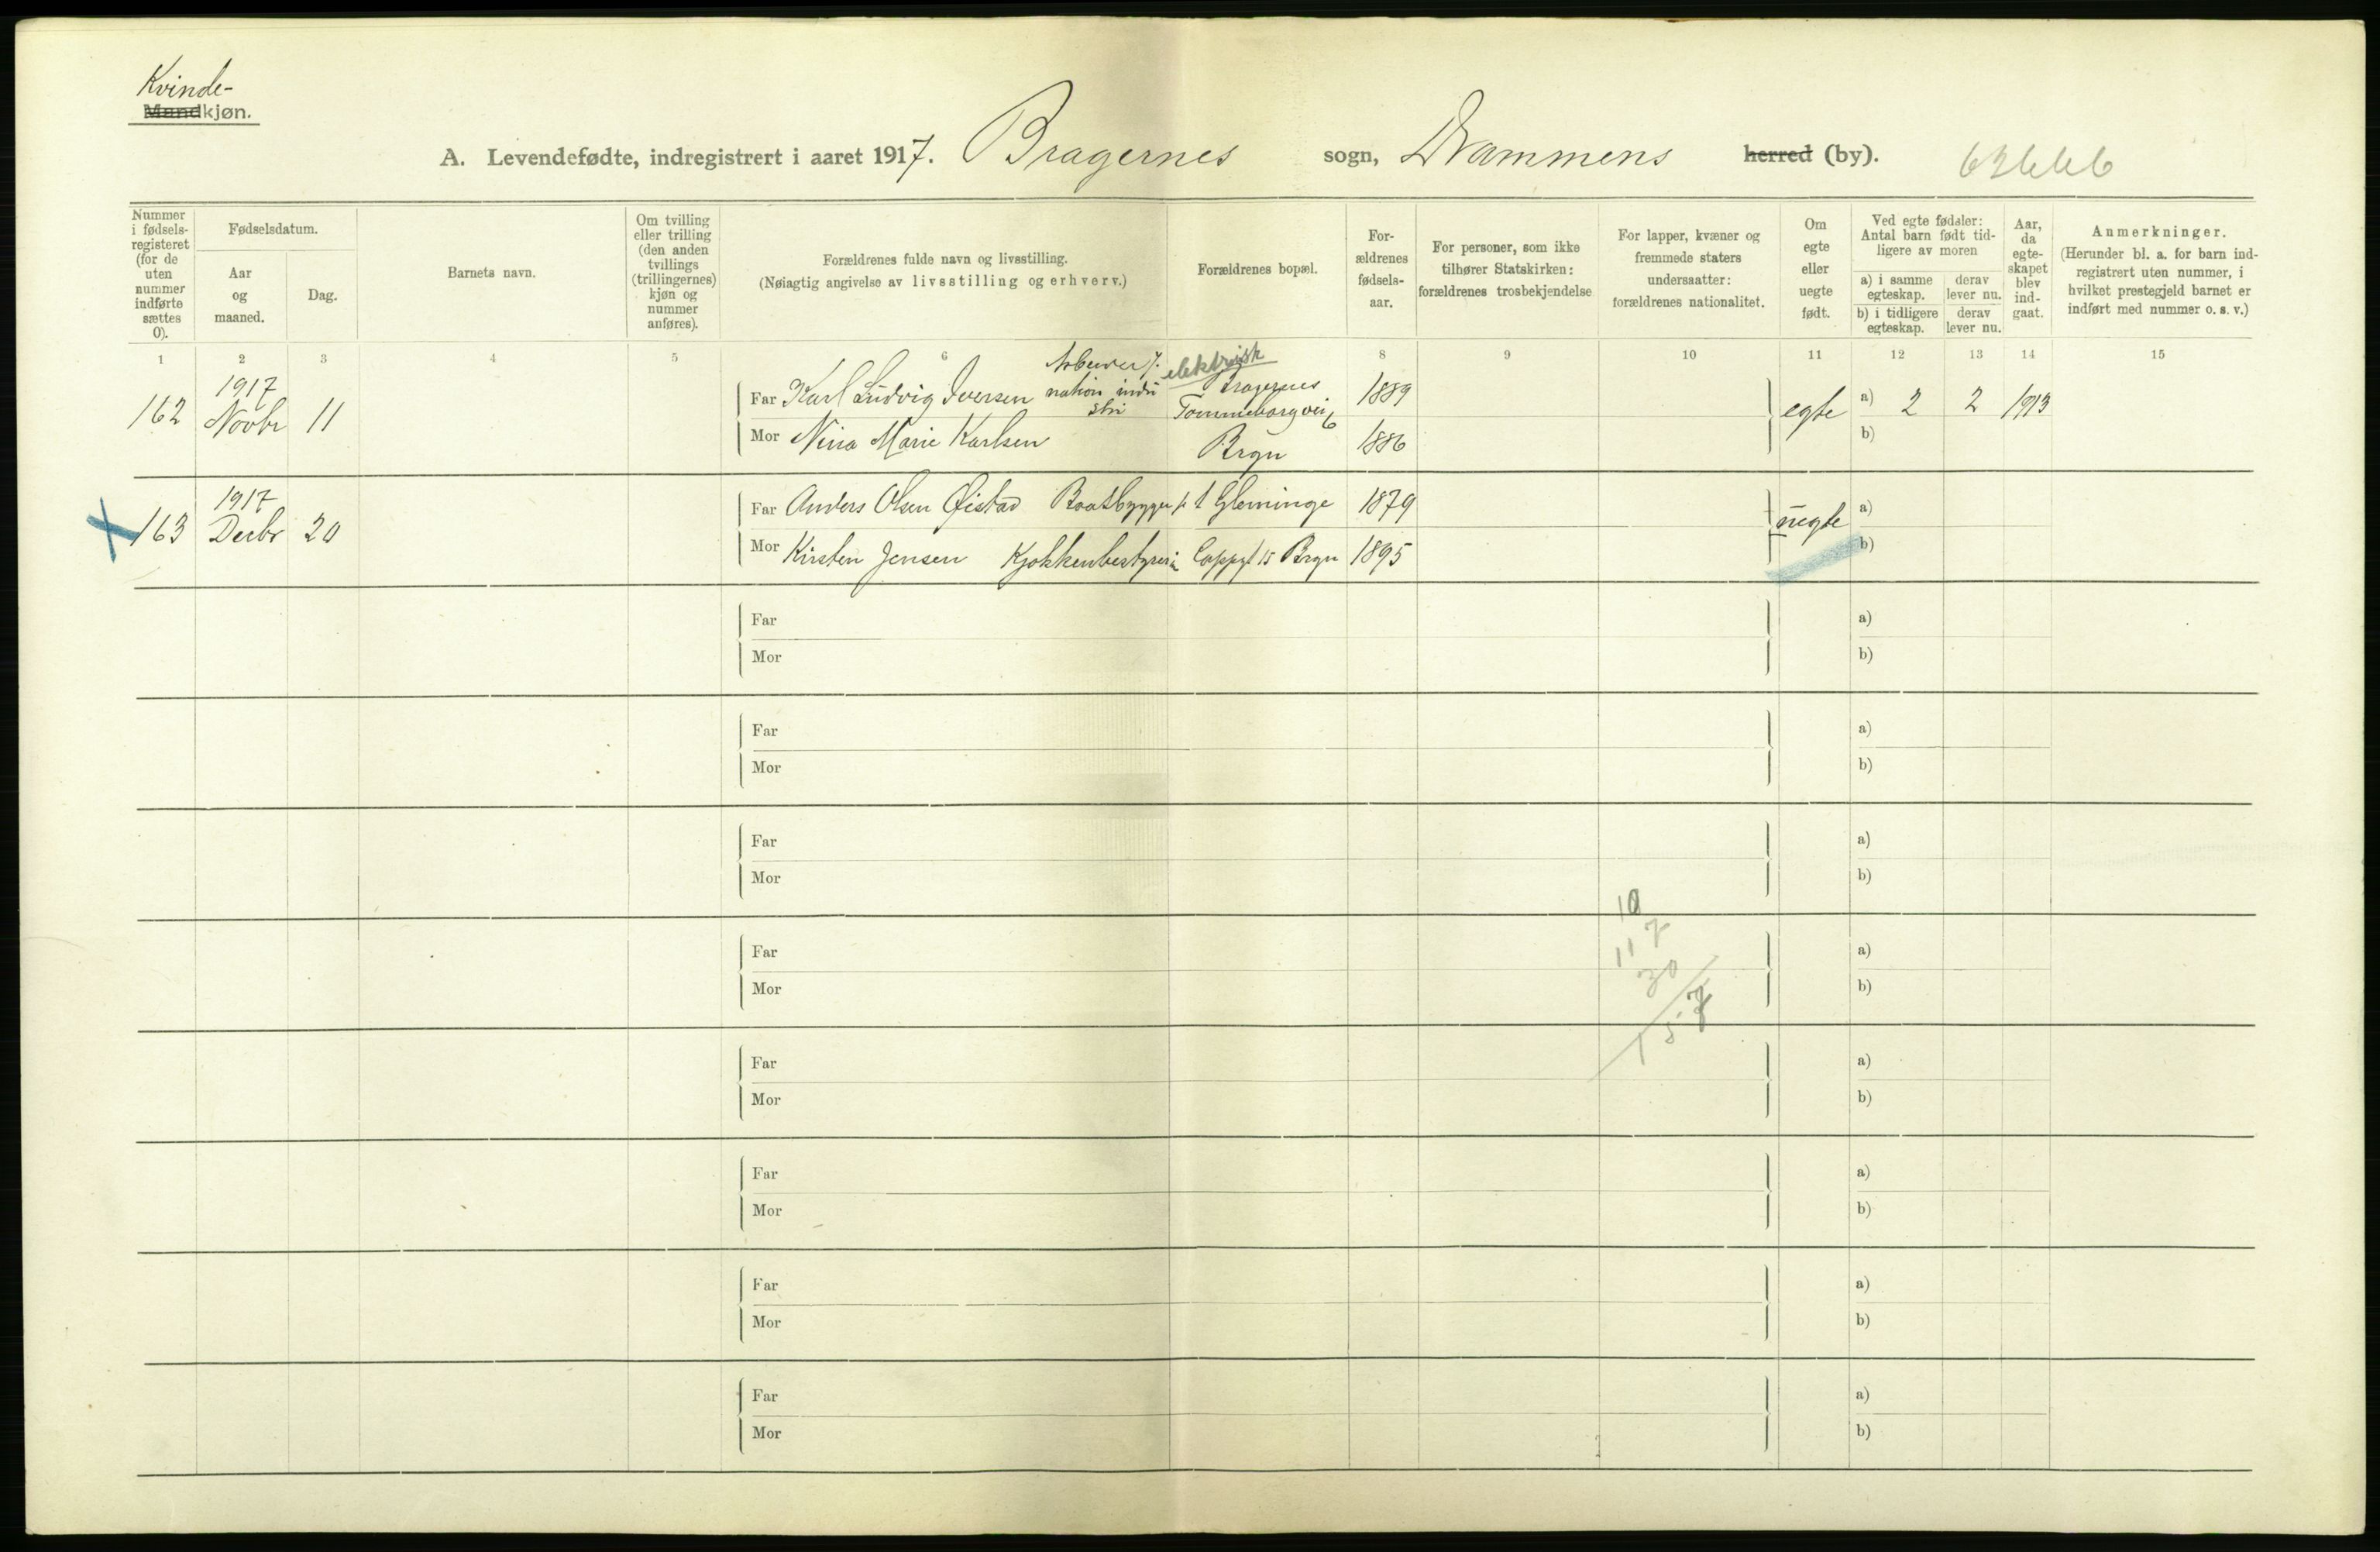 Kvinde-
Mandkjøn.
A. Levendefødte, indregistrert i aaret 1917. Bragernes sogn, Drammens herred (by).
Nummer i fødsels-registeret (for de uten nummer indførte sættes 0).
Fødselsdatum.
Aar og maaned.
Dag.
Barnets navn.
Om tvilling eller trilling (den anden tvillings (trillingernes) kjøn og nummer anføres).
Forældrenes fulde navn og livsstilling.
(Nøiagtig angivelse av livsstilling og erhverv.)
Forældrenes bopæl.
For-ældrenes fødsels-aar.
For personer, som ikke tilhører Statskirken: forældrenes trosbekjendelse
For lapper, kvæner og fremmede staters undersaatter: forældrenes nationalitet.
Om egte eller uegte født.
Ved egte fødsler: Antal barn født tid-ligere av moren
a) i samme egteskap.
derav lever nu.
b) i tidligere egteskap.
derav lever nu.
Aar, da egte-skapet blev ind-gaat.
Anmerkninger.
(Herunder bl. a. for barn ind-registrert uten nummer, i hvilket prestegjeld barnet er indført med nummer o. s. v.)
1 2 3 4 5 6 8 9 10 11 12 13 14 15
162 1917 Novbr 11
Far Karl Ludvig Iversen nation indu stri elektrisk Bragernes Tommeborgvei 6 1889
Mor Nina Marie Karlsen Brgn 1886
egte a) 2 2 1913
b)
163 1917 Decbr 20
Far Anders Olsen Øistad Baatbygger p t Glemminge 1879
Mor Kirsten Jensen Kjøkkenbestyrerin Cappgt 15 Brgn 1895
uegte a)
b)
Far a)
Mor b)
Far a)
Mor b)
Far a)
Mor b)
10
11 7
30
Far a)
Mor b)
157
Far a)
Mor b)
Far a)
Mor b)
Far a)
Mor b)
Far a)
Mor b)